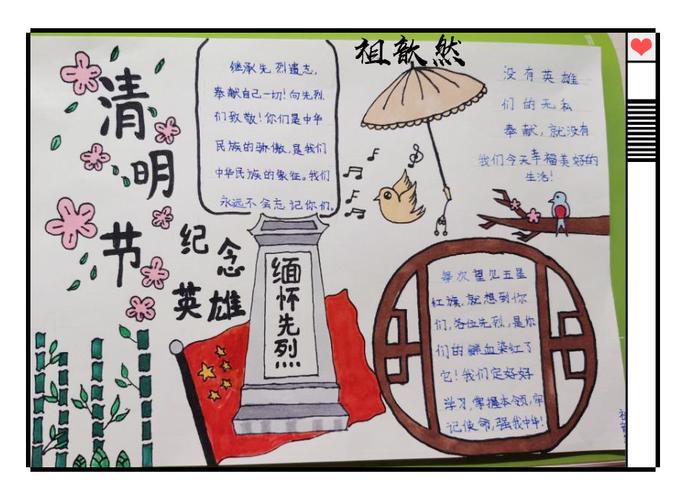 祖歆然
清明节
继承先烈遗志,
奉献自己一切!向先烈
们致敬!你们是中华
民族的骄傲,是我们
中华民族的象征。我们
永远不会忘记你们。
没有英雄
们的无私
奉献,就没有
我们今天幸福美好的
生活!
纪念
英雄
缅怀先烈
每次望见五星
红旗,就想到你
们,各位先烈,是你
们的鲜血染红了
它!我们定好好
学习,掌握本领,牢
记使命,强我中华!